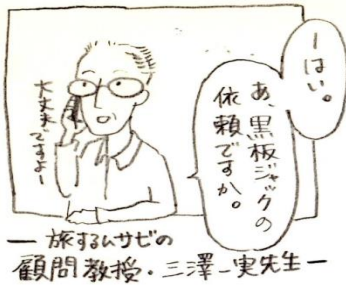 ーはい。
あ、黒板ジャックの
依頼ですか。
大丈夫ですよー
― 旅するムサビの
顧問教授・三澤一実先生 ―